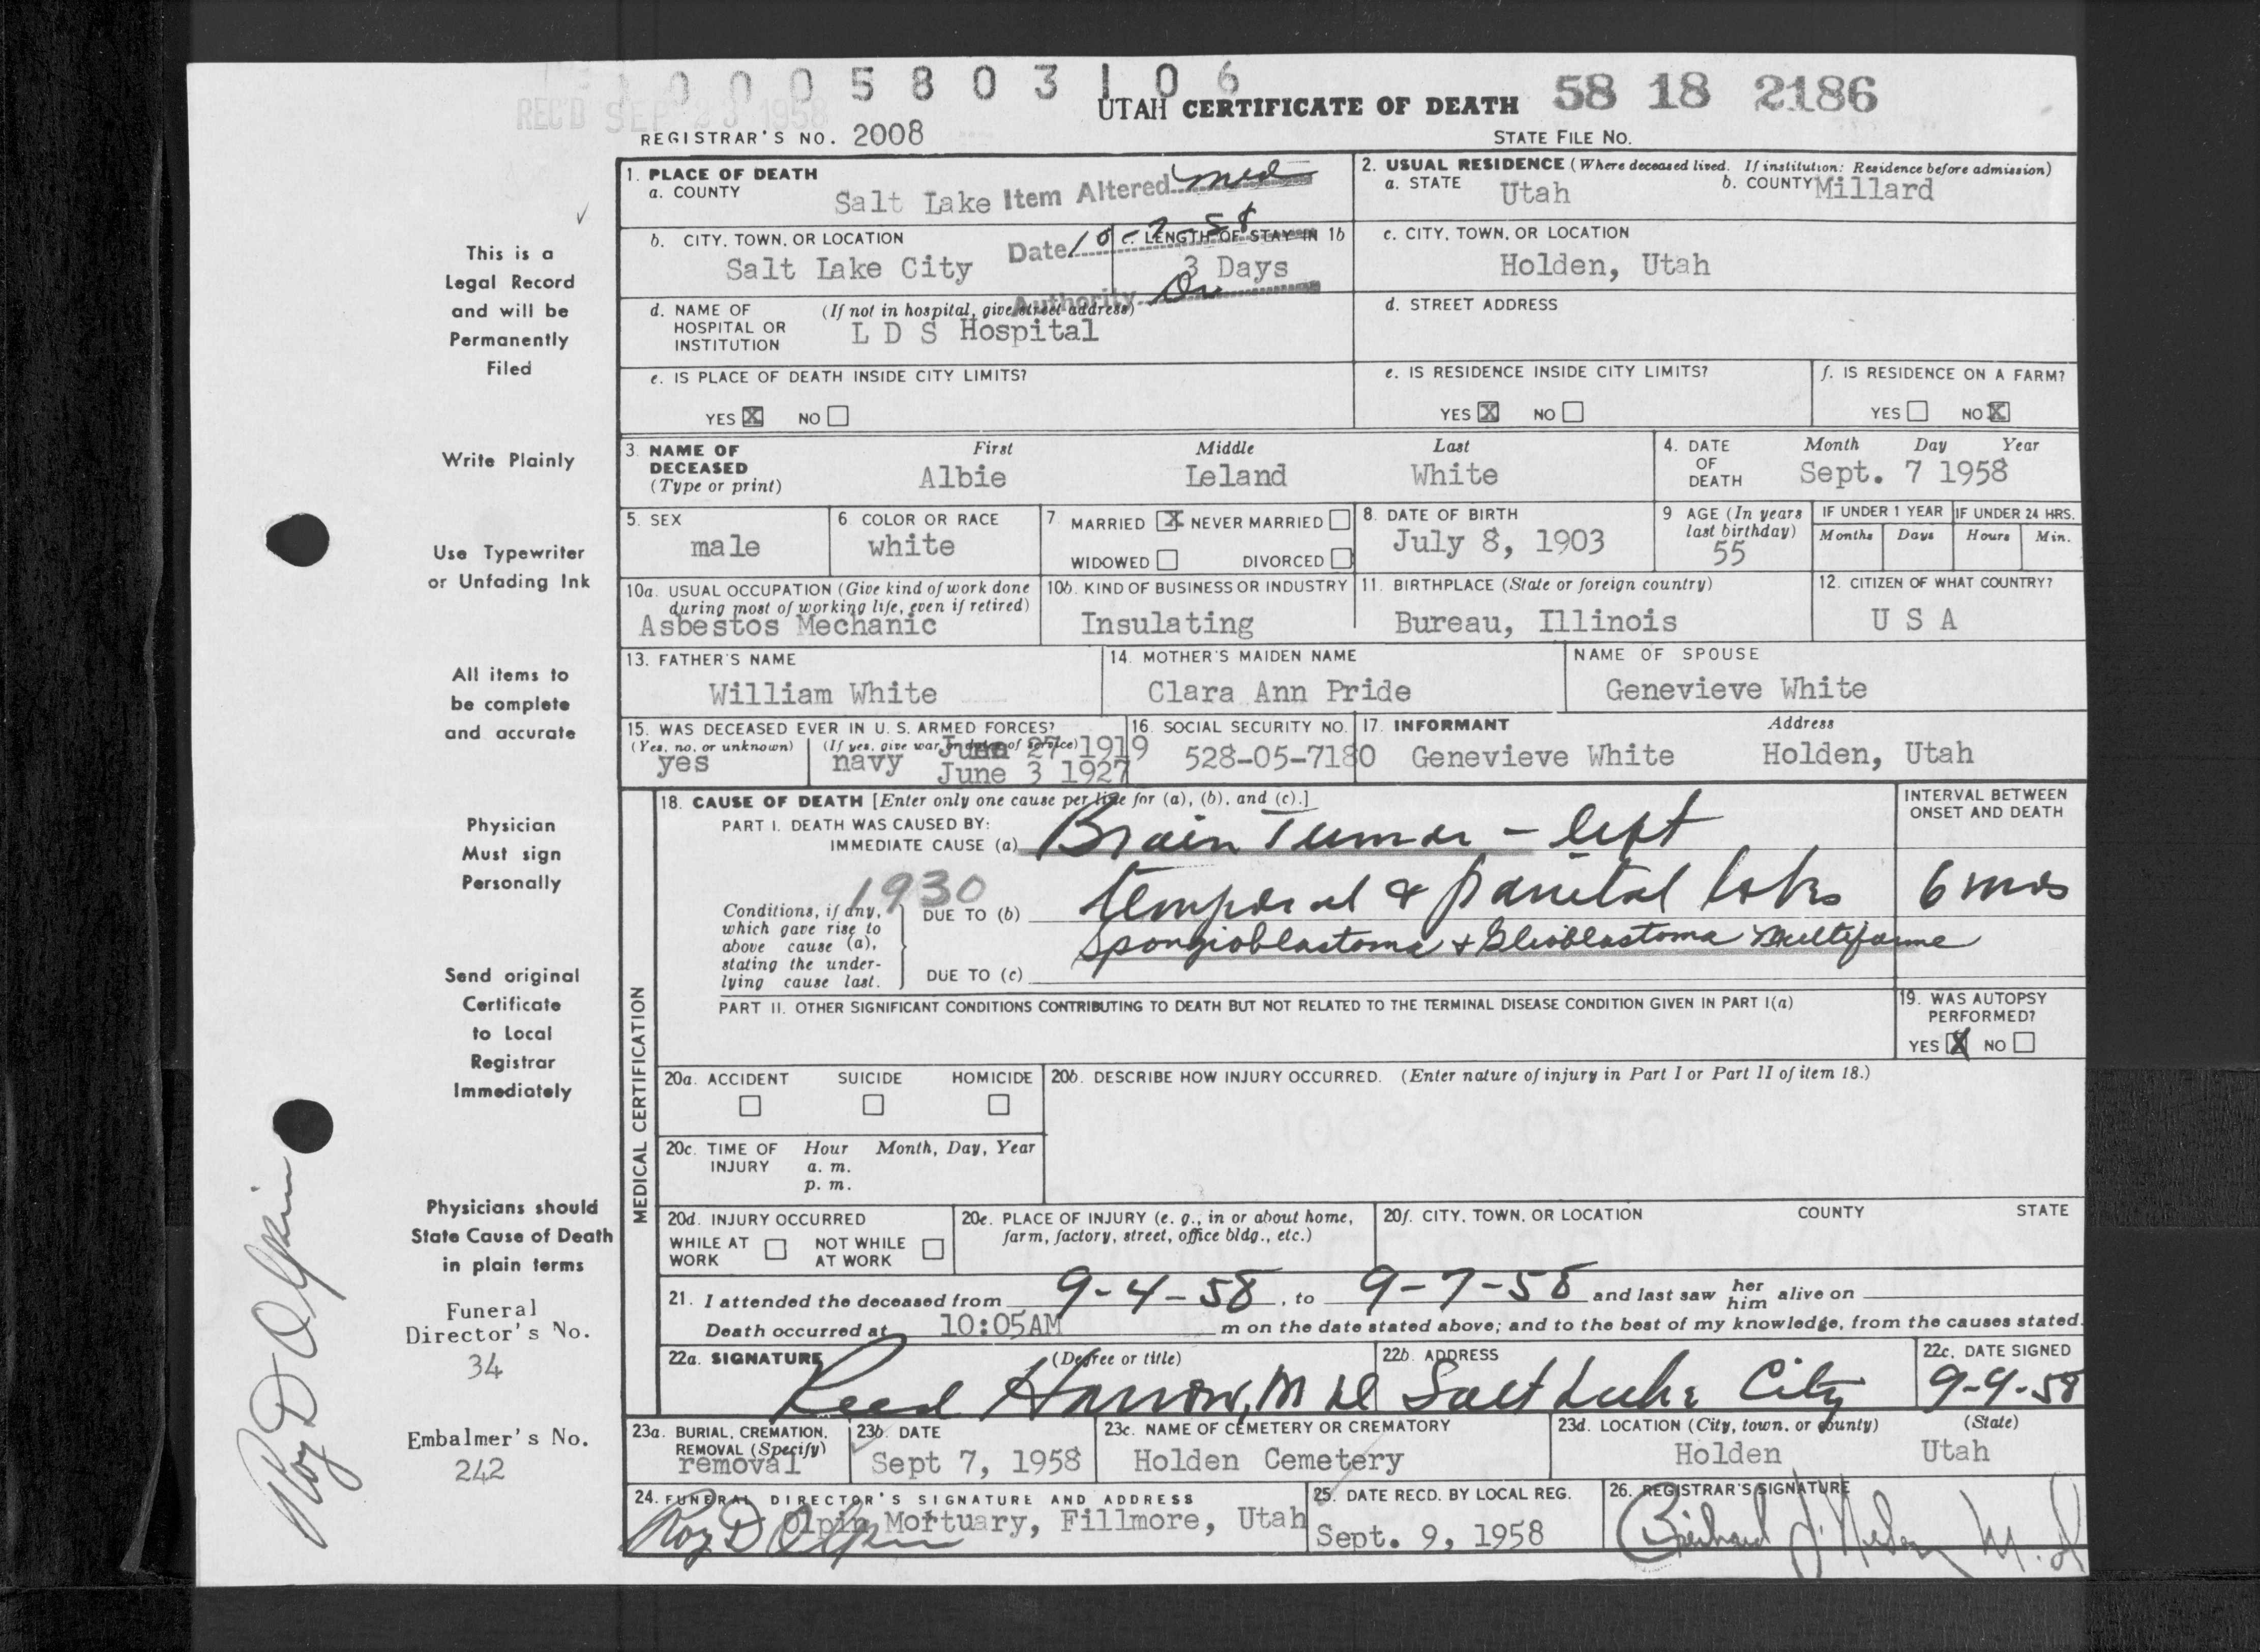 1 0 0 0 5 8 0 3 1 0 6
REC'D SEP 23 1958
UTAH CERTIFICATE OF DEATH 58 18 2186
REGISTRAR'S NO. 2008 STATE FILE NO.
1. PLACE OF DEATH
a. COUNTY Salt Lake Item Altered med
2. USUAL RESIDENCE (Where deceased lived. If institution: Residence before admission)
a. STATE Utah b. COUNTY Millard
b. CITY, TOWN, OR LOCATION Salt Lake City
Date 10-7-58
c. LENGTH OF STAY IN 1b 3 Days
c. CITY, TOWN, OR LOCATION
Holden, Utah
Authority Dr
d. NAME OF HOSPITAL OR INSTITUTION (If not in hospital, give street address)
L D S Hospital
d. STREET ADDRESS
e. IS PLACE OF DEATH INSIDE CITY LIMITS?
YES X NO
e. IS RESIDENCE INSIDE CITY LIMITS?
YES X NO
f. IS RESIDENCE ON A FARM?
YES NO X
3. NAME OF DECEASED (Type or print)
First Middle Last
Albie Leland White
4. DATE OF DEATH Month Day Year
Sept. 7 1958
5. SEX
male
6. COLOR OR RACE
white
7. MARRIED X NEVER MARRIED
WIDOWED DIVORCED
8. DATE OF BIRTH
July 8, 1903
9 AGE (In years last birthday)
55
IF UNDER 1 YEAR
Months Days
IF UNDER 24 HRS.
Hours Min.
10a. USUAL OCCUPATION (Give kind of work done during most of working life, even if retired)
Asbestos Mechanic
10b. KIND OF BUSINESS OR INDUSTRY
Insulating
11. BIRTHPLACE (State or foreign country)
Bureau, Illinois
12. CITIZEN OF WHAT COUNTRY?
U S A
13. FATHER'S NAME
William White
14. MOTHER'S MAIDEN NAME
Clara Ann Pride
NAME OF SPOUSE
Genevieve White
15. WAS DECEASED EVER IN U. S. ARMED FORCES?
(Yes, no, or unknown) (If yes, give war or dates of service)
yes navy 27 1919
June 3 1927
16. SOCIAL SECURITY NO.
528-05-7180
17. INFORMANT Address
Genevieve White Holden, Utah
MEDICAL CERTIFICATION
18. CAUSE OF DEATH [Enter only one cause per line for (a), (b), and (c).]
PART I. DEATH WAS CAUSED BY:
IMMEDIATE CAUSE (a) Brain Tumor - left
1930
Conditions, if any, which gave rise to above cause (a), stating the underlying cause last.
DUE TO (b) temporal & parietal lobes
spongioblastoma + Glioblastoma Multiforme
DUE TO (c)
INTERVAL BETWEEN ONSET AND DEATH
6 mos
PART II. OTHER SIGNIFICANT CONDITIONS CONTRIBUTING TO DEATH BUT NOT RELATED TO THE TERMINAL DISEASE CONDITION GIVEN IN PART I(a)
19. WAS AUTOPSY PERFORMED?
YES X NO
20a. ACCIDENT SUICIDE HOMICIDE
20b. DESCRIBE HOW INJURY OCCURRED. (Enter nature of injury in Part I or Part II of item 18.)
20c. TIME OF INJURY Hour Month, Day, Year
a. m.
p. m.
20d. INJURY OCCURRED
WHILE AT WORK NOT WHILE AT WORK
20e. PLACE OF INJURY (e. g., in or about home, farm, factory, street, office bldg., etc.)
20f. CITY, TOWN, OR LOCATION COUNTY STATE
21. I attended the deceased from 9-4-58, to 9-7-58 and last saw her him alive on
Death occurred at 10:05AM m on the date stated above; and to the best of my knowledge, from the causes stated.
22a. SIGNATURE (Degree or title)
Reed Harrow, M D
22b. ADDRESS
Salt Lake City
22c. DATE SIGNED
9-9-58
23a. BURIAL, CREMATION, REMOVAL (Specify)
removal
23b. DATE
Sept 7, 1958
23c. NAME OF CEMETERY OR CREMATORY
Holden Cemetery
23d. LOCATION (City, town, or county) (State)
Holden Utah
24. FUNERAL DIRECTOR'S SIGNATURE AND ADDRESS
Roy D Olpin
Olpin Mortuary, Fillmore, Utah
25. DATE RECD. BY LOCAL REG.
Sept. 9, 1958
26. REGISTRAR'S SIGNATURE
M. D
This is a
Legal Record
and will be
Permanently
Filed
Write Plainly
Use Typewriter
or Unfading Ink
All items to
be complete
and accurate
Physician
Must sign
Personally
Send original
Certificate
to Local
Registrar
Immediately
Physicians should
State Cause of Death
in plain terms
Funeral
Director's No.
34
Embalmer's No.
242
Roy D Olpin